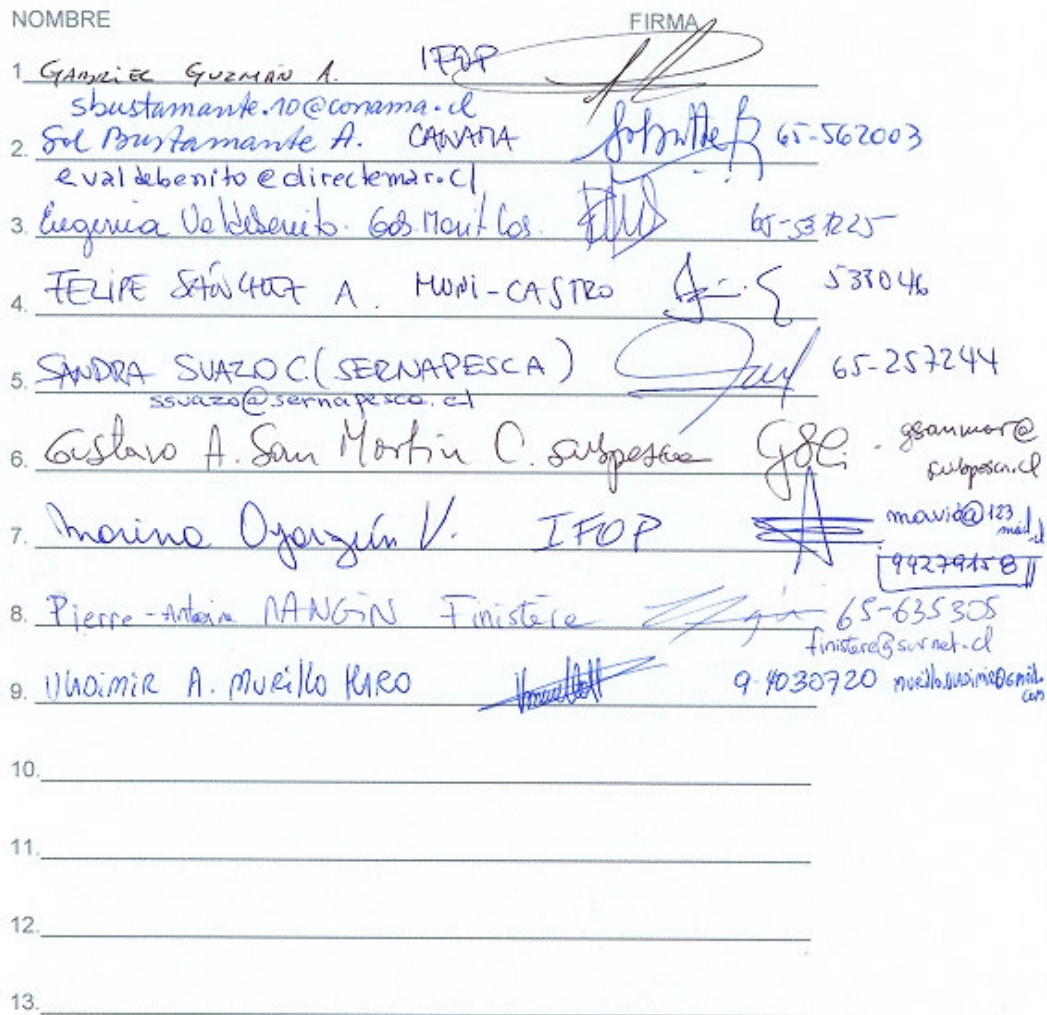 NOMBRE FIRMA
1. GABRIEL GUZMÁN A. IFOP
sbustamante.10@conama.cl
2. Sol Bustamante A. CANAMA 65-562003
evaldebenito@directemar.cl
3. Eugenia Valdebenito. Gob. Marit Cas. 65-531225
4. FELIPE SÁNCHEZ A. MUNI-CASTRO 538046
5. SANDRA SUAZO C. (SERNAPESCA) 65-257244
ssuazo@sernapesca.cl
6. Gustavo A. San Martin C. subpesca gsanmar@
subpesca.cl
7. Marina Oyarzún V. IFOP @123
mail.cl
94279158
8. Pierre-Antoine MANGIN Finistère 65-635305
finistere@surnet.cl
9. A. MURillo HARO 9-4030720
10.
11.
12.
13.